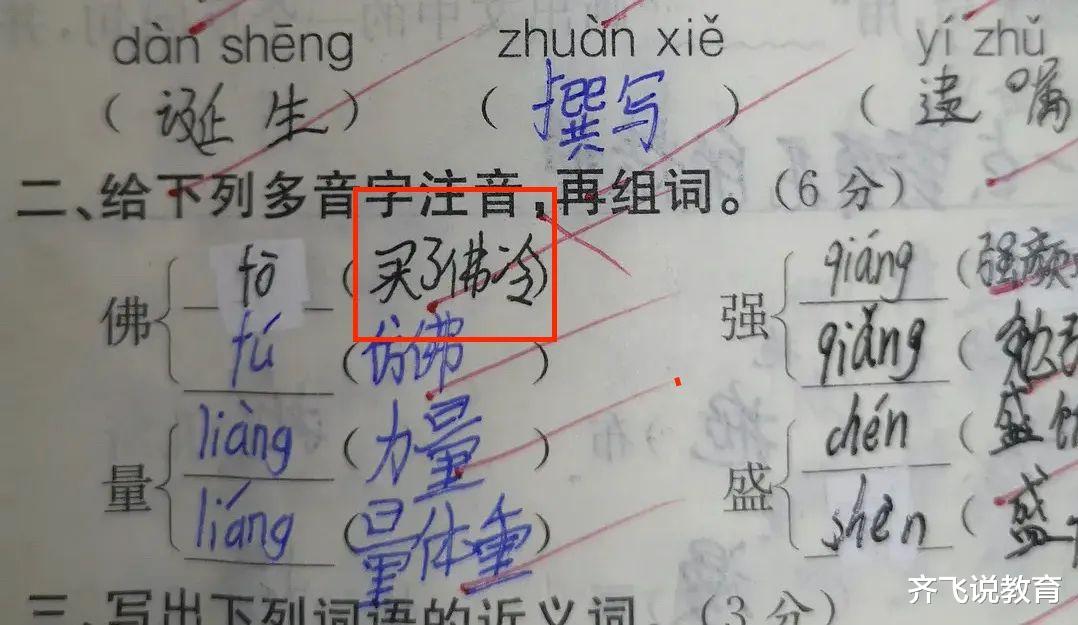 dàn shēng zhuàn xiě yí zhǔ
(诞生) (撰写) (遗嘱
二、给下列多音字注音,再组词。(6分)
佛 fō (买了佛冷) 强 qiáng (强颜
fú (仿佛) qiǎng (勉
量 liàng (力量) 盛 chén (盛
liáng (量体重) shen (盛
三、写出下列词语的近义词。(3分)
齐飞说教育